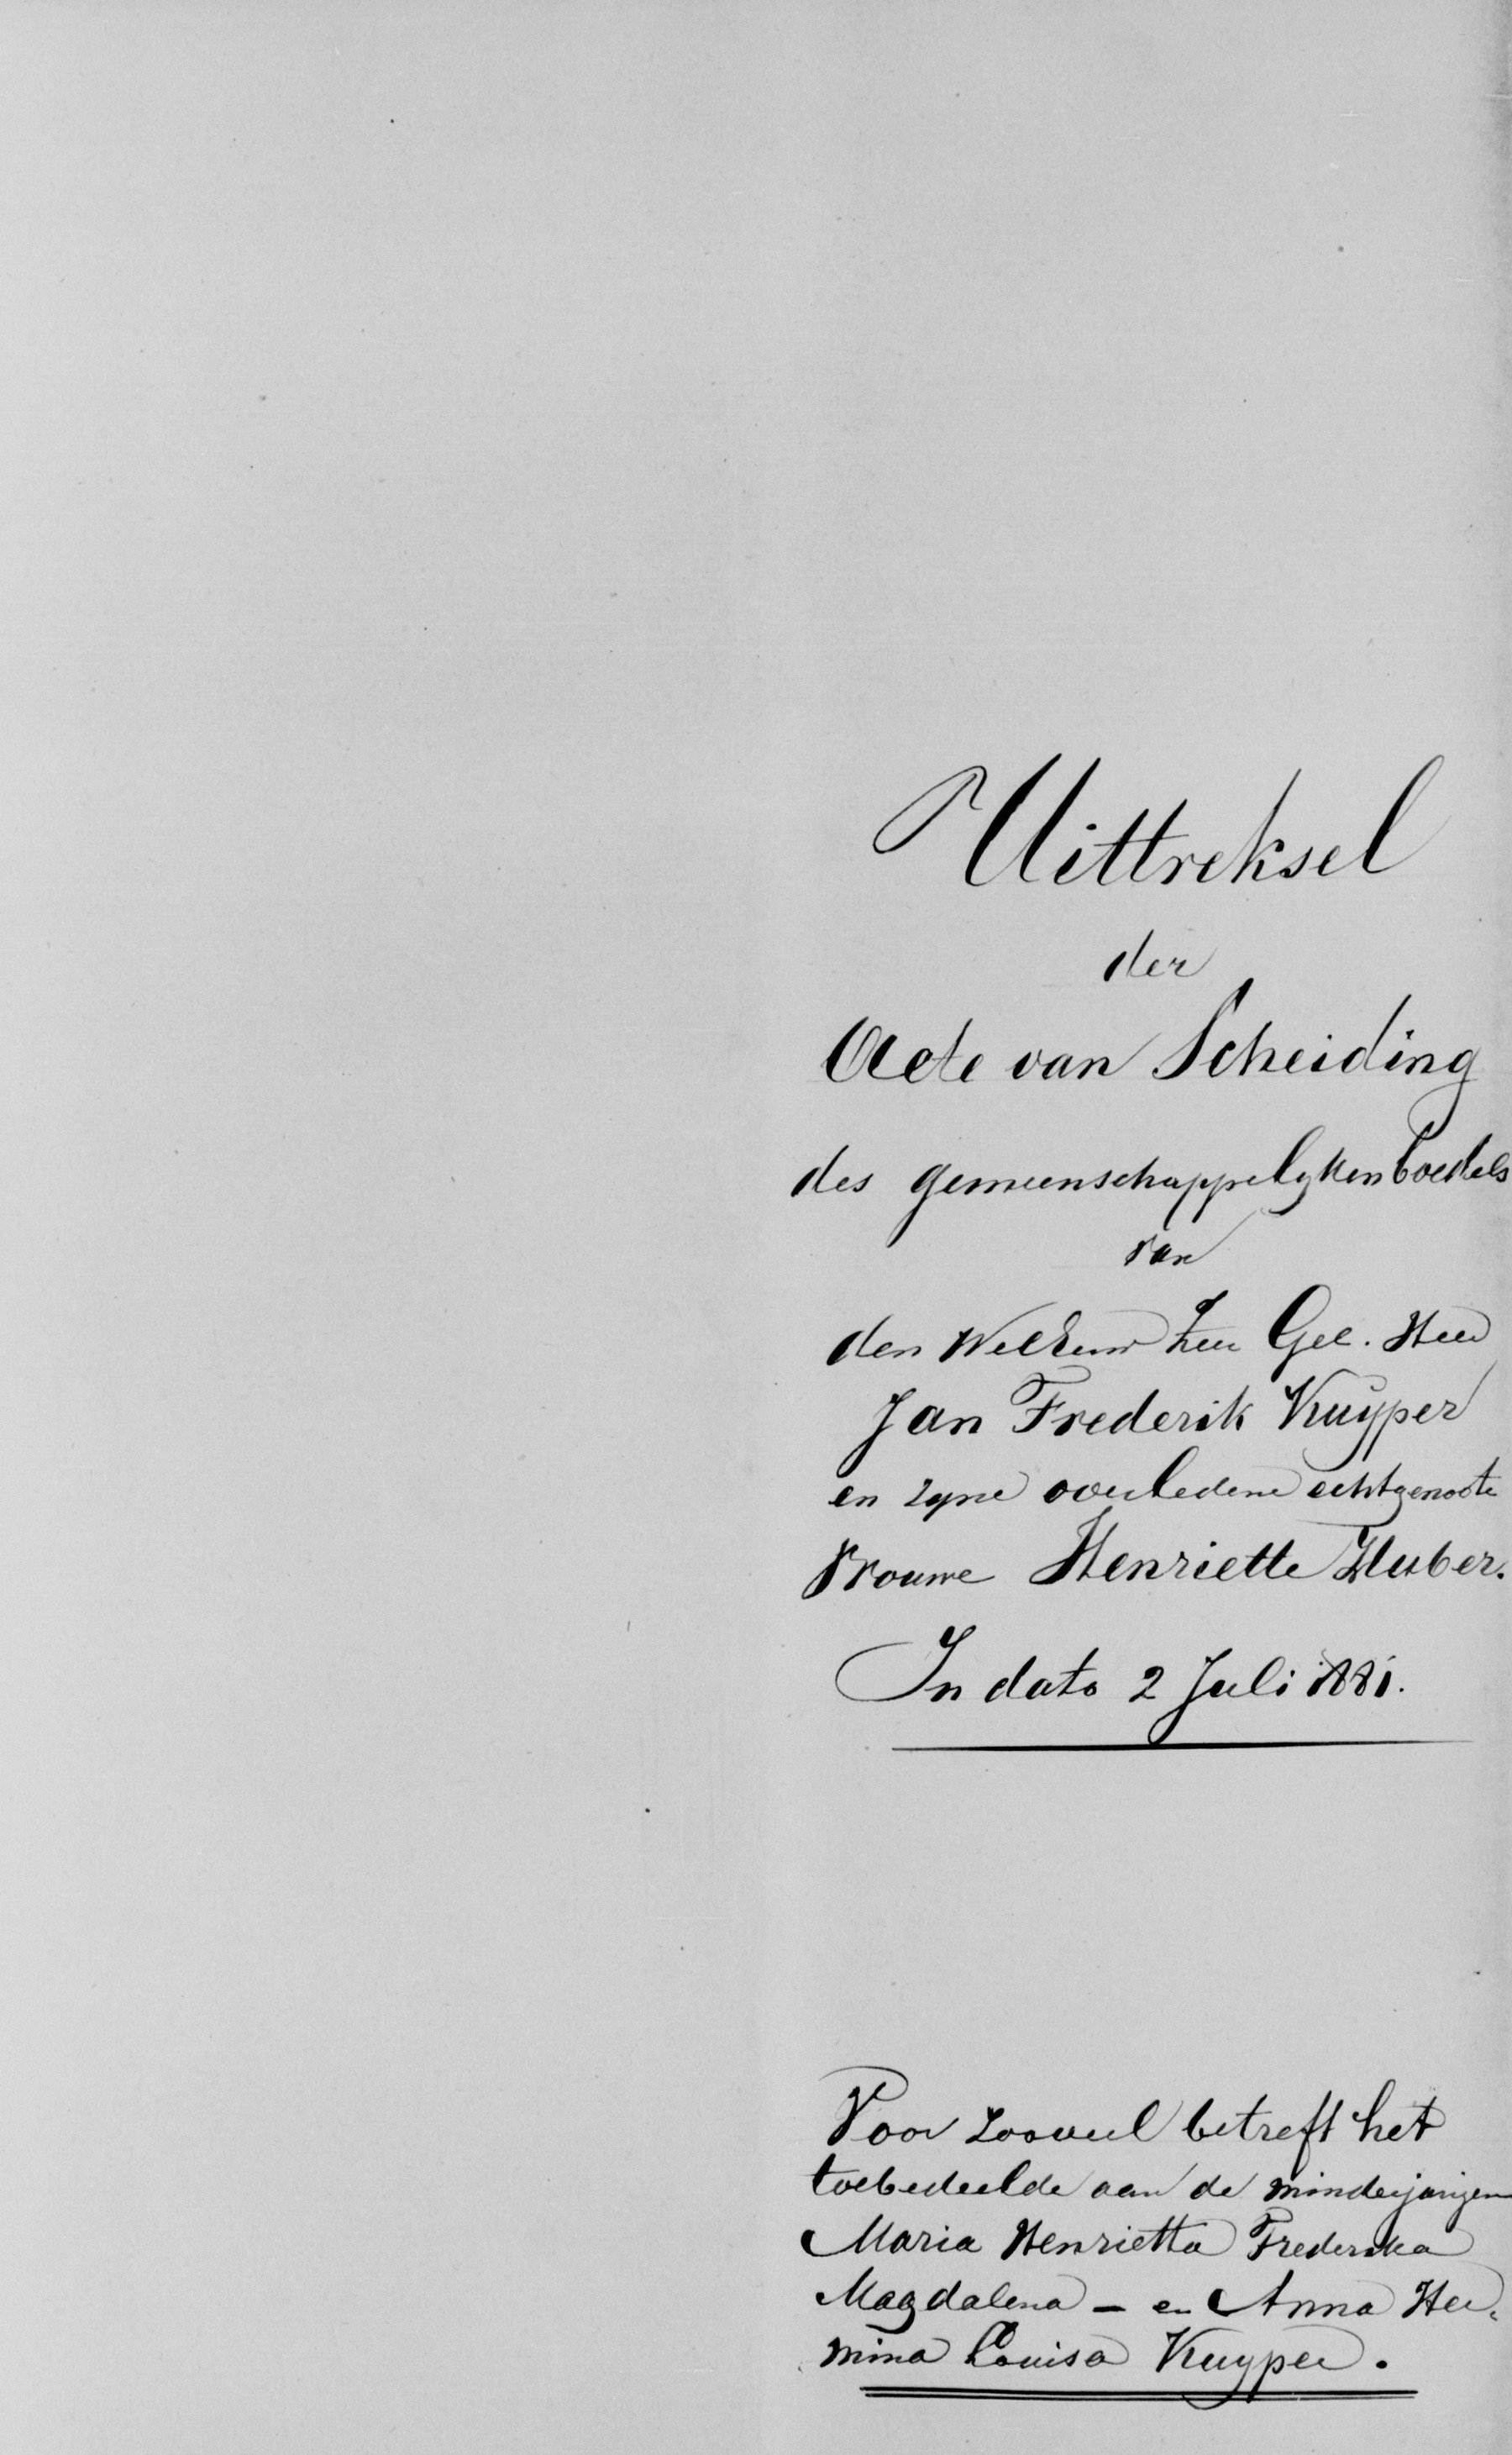 Uittreksel
der
Acte van Scheiding
des gemeenschappelyken boedels
van
den WelEerw Zeer Gel. Heer
Jan Frederik Kuyper
en zyne overledene echtgenoote
Vrouwe Henriette Huber.
In dato 2 Juli 1881.
Voor zooveel betreft het
toebedeelde aan de minderjarigen
Maria Henrietta Frederika
Magdalena - en Anna Her-
mina Louisa Kuyper.